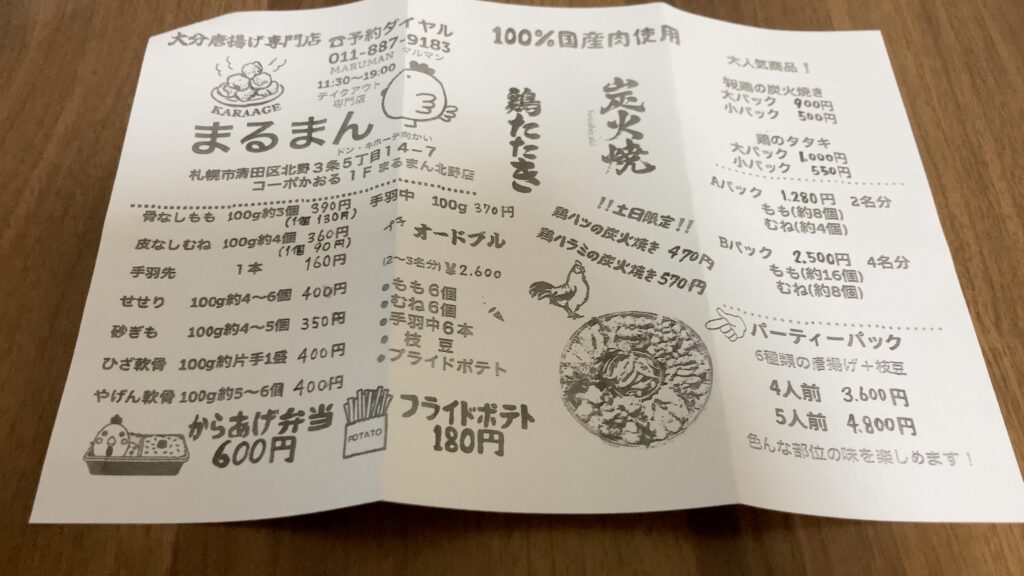 大分唐揚げ専門店
☎予約ダイヤル
011-887-9183
MARUMAN マルマン
11:30〜19:00
テイクアウト
専門店
KARAAGE
まるまん
ドン・キホーテ向かい
札幌市清田区北野3条5丁目14-7
コーポかおる1F まるまん北野店
骨なしもも 100g約3個 390円
(1個 130円)
皮なしむね 100g約4個 360円
(1個 90円)
手羽先 1本 160円
せせり 100g約4〜6個 400円
砂ぎも 100g約4〜5個 350円
ひざ軟骨 100g約片手1盛 400円
やげん軟骨 100g約5〜6個 400円
からあげ弁当
600円
手羽中 100g 370円
オードブル
(2〜3名分) ¥2.600
•もも6個
•むね6個
•手羽中6本
•枝豆
•フライドポテト
POTATO
フライドポテト
180円
100%国産肉使用
鶏たたき
炭火焼
Sumibiyaki
!!土日限定!!
鶏ハツの炭火焼き 470円
鶏ハラミの炭火焼き 570円
大人気商品!
親鶏の炭火焼き
大パック 900円
小パック 500円
鶏のタタキ
大パック 1.000円
小パック 550円
Aパック 1.280円 2名分
もも(約8個)
むね(約4個)
Bパック 2.500円 4名分
もも(約16個)
むね(約8個)
パーティーパック
6種類の唐揚げ+枝豆
4人前 3.600円
5人前 4.800円
色んな部位の味を楽しめます!